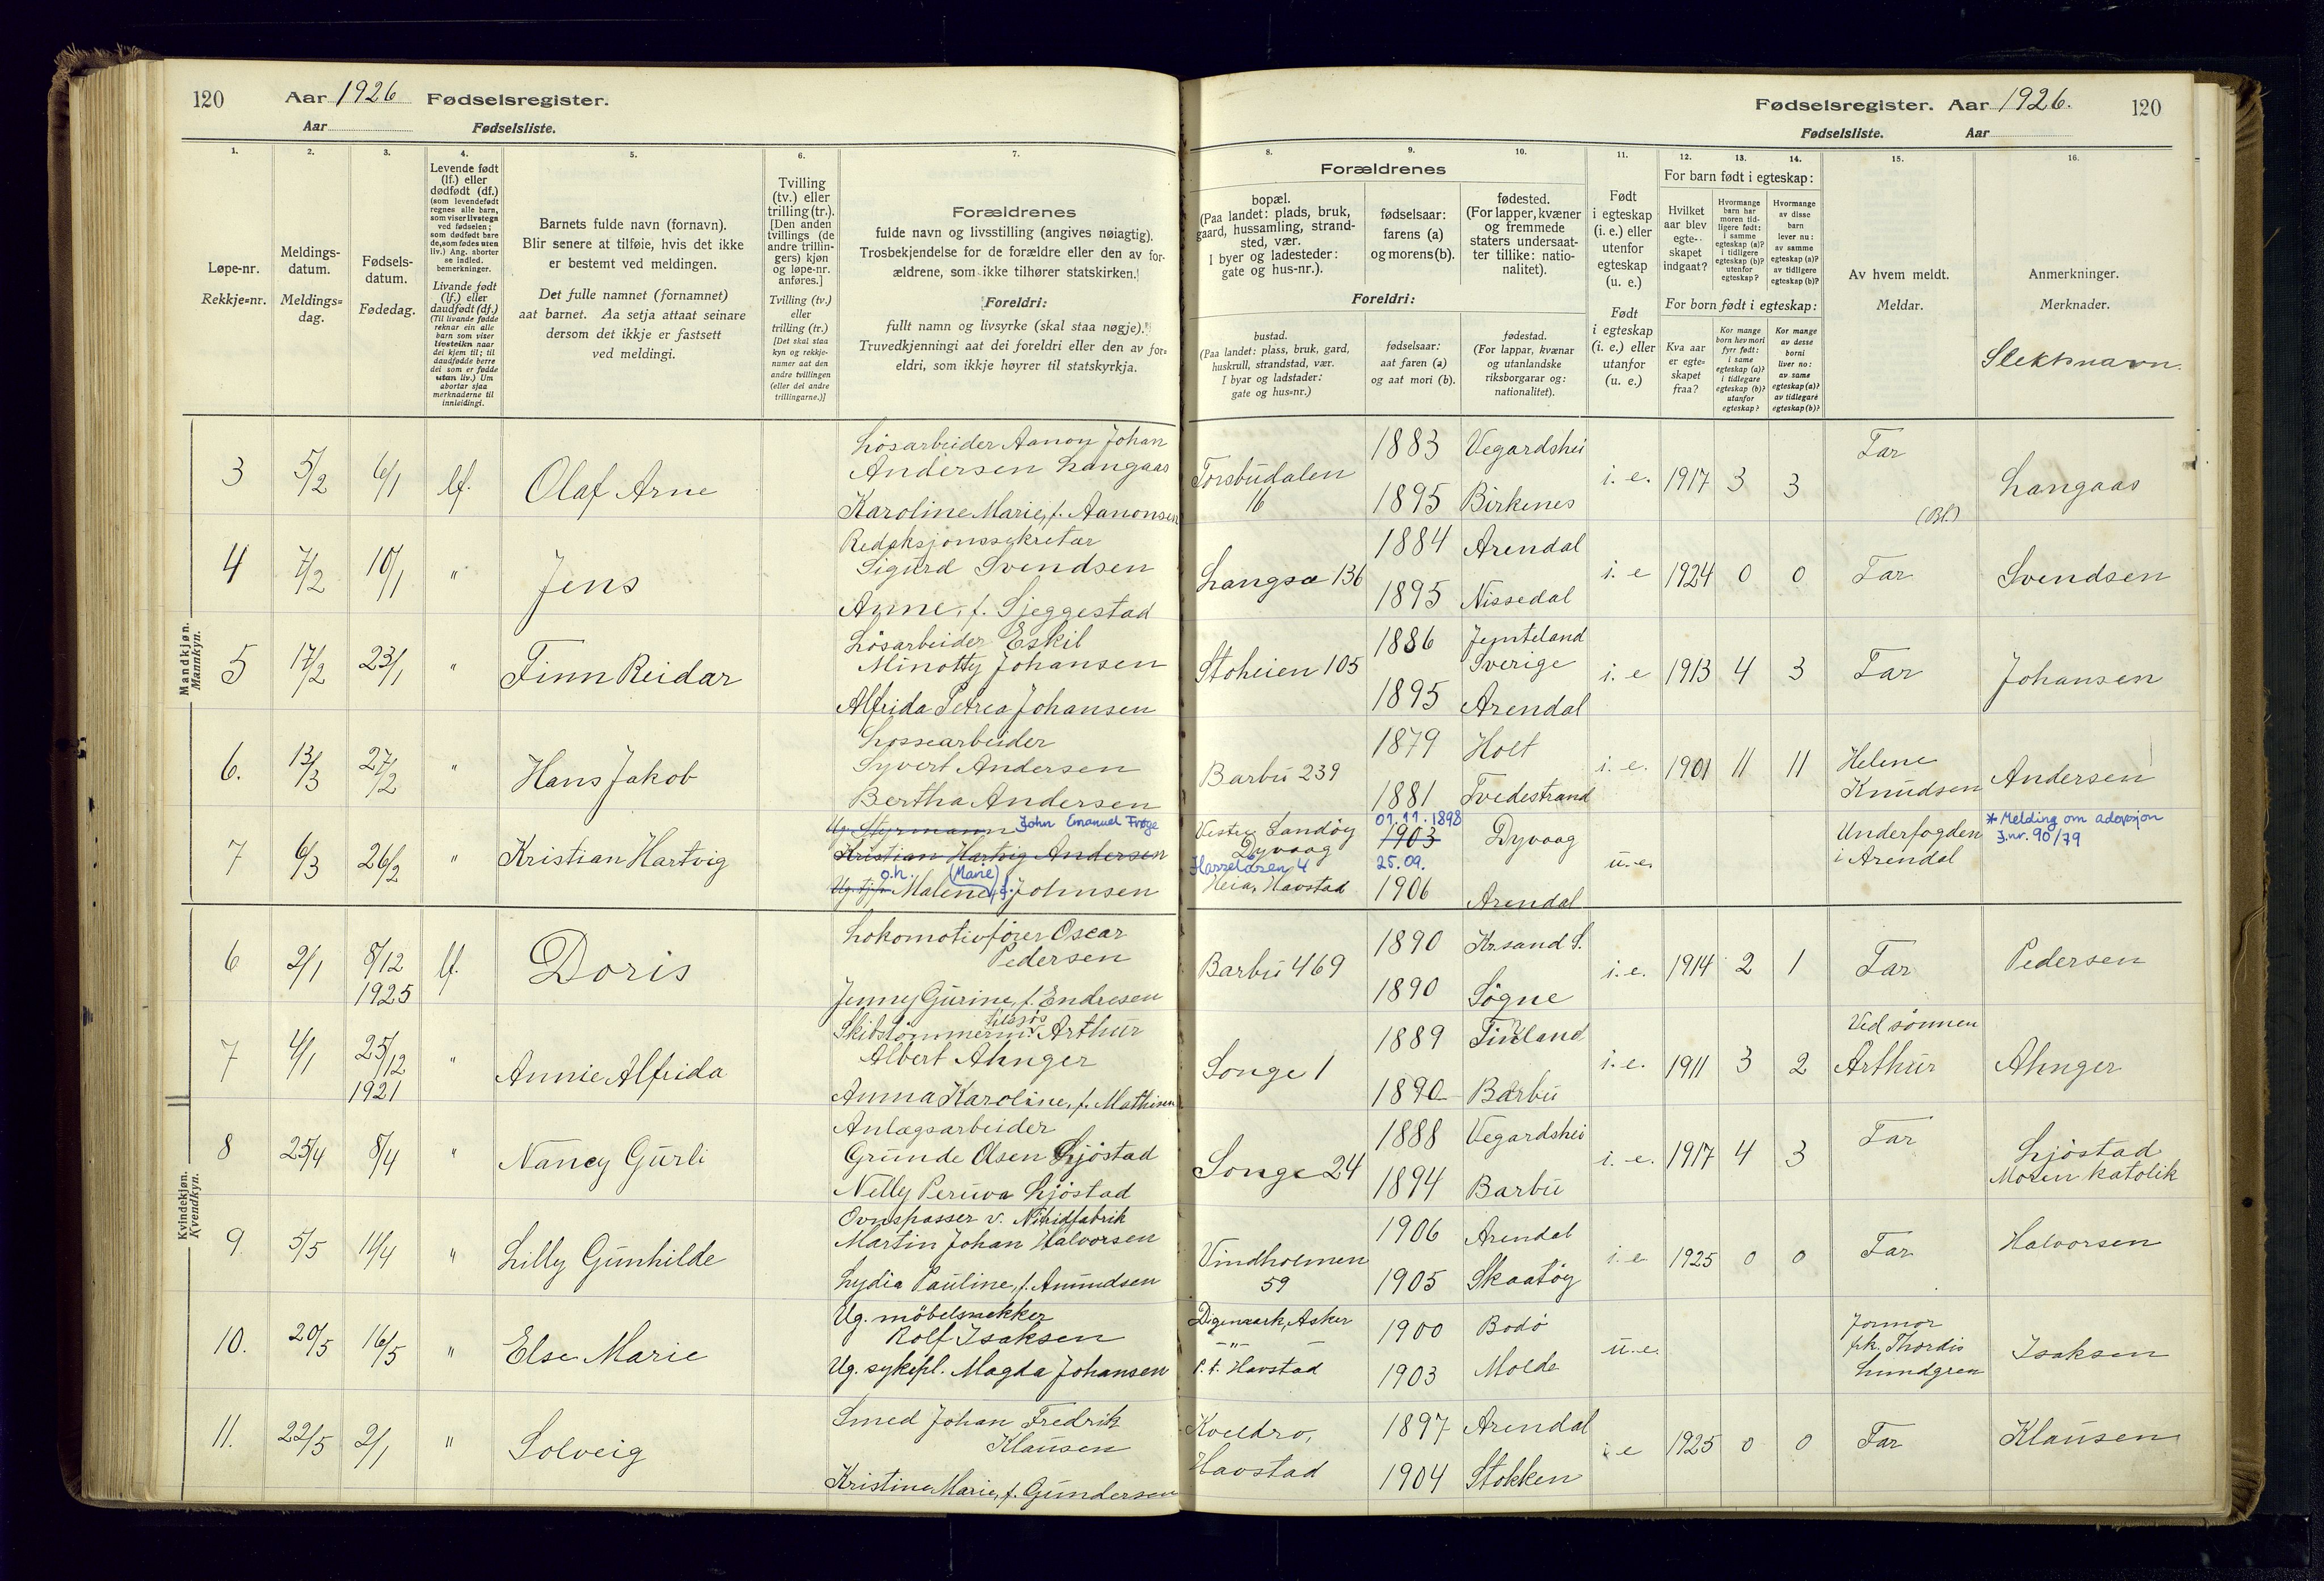 120 Aar 1926 Fødselsregister.
Aar Fødselsliste.
Fødselsregister. Aar 1926. 120
Fødselsliste. Aar
1.
Løpe-nr.
Rekkje=nr.
2.
Meldings-
datum.
Meldings=
dag.
3.
Fødsels-
datum.
Fødedag.
4.
Levende født
(lf.) eller
dødfødt (df.)
(som levendefødt
regnes alle barn,
som viser livstegn
ved fødselen;
som dødfødt bare
de, som fødes uten
liv.) Ang. aborter
se indled.
bemerkninger.
Livande født
(lf.) eller
daudfødt (df.)
(Til livande fødde
reknar ein alle
barn som viser
livsteikn naar
dei kjem til; til
daudfødde berre
dei som er fødde
utan liv.) Um
abortar sjaa
merknaderne til
innleidingi.
5.
Barnets fulde navn (fornavn).
Blir senere at tilføie, hvis det ikke
er bestemt ved meldingen.
Det fulle namnet (fornamnet)
aat barnet. Aa setja attaat seinare
dersom det ikkje er fastsett
ved meldingi.
6.
Tvilling
(tv.) eller
trilling (tr.).
[Den anden
tvillings (de
andre trillin-
gers) kjøn
og løpe-nr.
anføres.]
Tvilling (tv.)
eller
trilling (tr.)
[Det skal staa
kyn og rekkje-
numer aat den
andre tvillingen
(eller dei andre
trillingarne.)]
7.
Forældrenes
fulde navn og livsstilling (angives nøiagtig).
Trosbekjendelse for de forældre eller den av for-
ældrene, som ikke tilhører statskirken.
Foreldri:
fullt namn og livsyrke (skal staa nøgje).
Truvedkjenningi aat dei foreldri eller den av for=
eldri, som ikkje høyrer til statskyrkja.
8.
9.
10.
Forældrenes
bopæl.
(Paa landet: plads, bruk,
gaard, hussamling, strand-
sted, vær.
I byer og ladesteder:
gate og hus-nr.).
fødselsaar:
farens (a)
og morens (b).
fødested.
(For lapper, kvæner
og fremmede
staters undersaat-
ter tillike: natio-
nalitet).
Foreldri:
bustad.
(Paa landet: plass, bruk, gard,
huskrull, strandstad, vær.
I byar og ladstader:
gate og hus=nr.)
fødselsaar:
aat faren (a)
og aat mori (b).
fødestad.
(For lappar, kvænar
og utanlandske
riksborgarar og:
nationalitet).
11.
Født
i egteskap
(i. e.) eller
utenfor
egteskap
(u. e.)
Født
i egteskap
(i. e.) eller
utanfor
(u. e.)
12.
13.
14.
For barn født i egteskap:
Hvilket
aar blev
egte-
skapet
indgaat?
Hvormange
barn har
moren tid-
ligere født:
i samme
egteskap (a)?
i tidligere
egteskap (b)?
utenfor
egteskap?
Hvormange
av disse
barn
lever nu:
av samme
egteskap (a)?
av tidligere
egteskap (b)?
For born født i egteskap:
Kva aar
er egte-
skapet
fraa?
Kor mange
born hev mori
fyrr født:
i same
egteskap (a)?
i tidlegare
egteskap (b)?
utanfor
egteskap?
Kor mange
av desse
borni
liver no:
av same
egteskap (a)?
av tidlegare
egteskap (b)?
15.
Av hvem meldt.
Meldar.
16.
Anmerkninger.
Merknader.
Slektsnavn.
Mandkjøn.
Mannkyn.
3 5/2 6/1 lf. Olaf Arne
Løsarbeider Aanon Johan
Andersen Langaas
Karoline Marie, f. Aanonsen
Torsbudalen
16
1883 Vegardshei
1895 Birkenes
i. e. 1917 3 3
Far
(Bl.)
Langaas
4 7/2 10/1 " Jens
Redaksjonssekretær
Sigurd Svendsen
Anne, f. Sjeggestad
Langsæ 136
1884 Arendal
1895 Nissedal
i. e 1924 0 0 Far Svendsen
5 17/2 23/1 " Finn Reidar
Løsarbeider Eskil
Minotty Johansen
Alfrida Petrea Johansen
Stoheien 105
1886 Jemteland
Sverige
1895 Arendal
i. e 1913 4 3 Far Johansen
6. 13/3 27/2 " Hans Jakob
Lossearbeider
Syvert Andersen
Bertha Andersen
Barbu 239
1879 Holt
1881 Tvedestrand
i. e. 1901 11 11
Helene
Knudsen
Andersen
7 6/3 26/2 " Kristian Hartvig
Ug. Styrmann John Emanuel Frøge
Kristian Hartvig Andersen
o.h. (Marie)
Ug. tj. Malene, f. Johnsen
Vestre Sandøy
Dyvaag
Hasselåsen 4
Heia, Havstad
01.11.1898
1903 Dyvaag
25.09.
1906 Arendal
u. e.
Underfogden
i Arendal
* Melding om adopsjon
J.nr. 90/79
Kvindekjøn.
Kvendkyn.
6 2/1 8/12 lf. Doris
1925
Lokomotivfører Oscar
Pedersen
Jenny Gurine, f. Endresen
Barbu 469
1890 Kr.sand S.
1890 Søgne
i. e. 1914 2 1 Far Pedersen
7 4/1 25/12 " Annie Alfrida
1921
tilsjøs
Skibstømmerm. Arthur
Albert Ahnger
Anna Karoline, f. Mathisen
Songe 1
1889 Finland
1890 Barbu
i. e. 1911 3 2
Ved sønnen
Arthur
Ahnger
8 25/4 8/4 " Nancy Gurli
Anlægsarbeider
Grunde Olsen Ljøstad
Nelly Peruva Ljøstad
Songe 24
1888 Vegardshei
1894 Barbu
i. e. 1917 4 3 Far
Ljøstad
Moren katolik
9 5/5 11/4 " Lilly Gunhilde
Ovnspasser v. Nitridfabrik
Martin Johan Halvorsen
Lydia Pauline, f. Amundsen
Vindholmen
59
1906 Arendal
1905 Skaatøy
i. e 1925 0 0 Far Halvorsen
10. 20/5 16/5 " Else Marie
Ug. møbelsnekker
Rolf Isaksen
Ug. sykepl. Magda Johansen
Digenaark, Asker
— " —
P.t. Havstad
1900 Bodø
1903 Molde
u. e.
Jormor
frk. Thordis
Lundgren
Isaksen
11. 22/5 2/1 " Solveig
Smed Johan Fredrik
Klausen
Kristine Marie, f. Gundersen
Kveldro,
Havstad
1897 Arendal
1904 Stokken
i. e 1925 0 0 Far Klausen